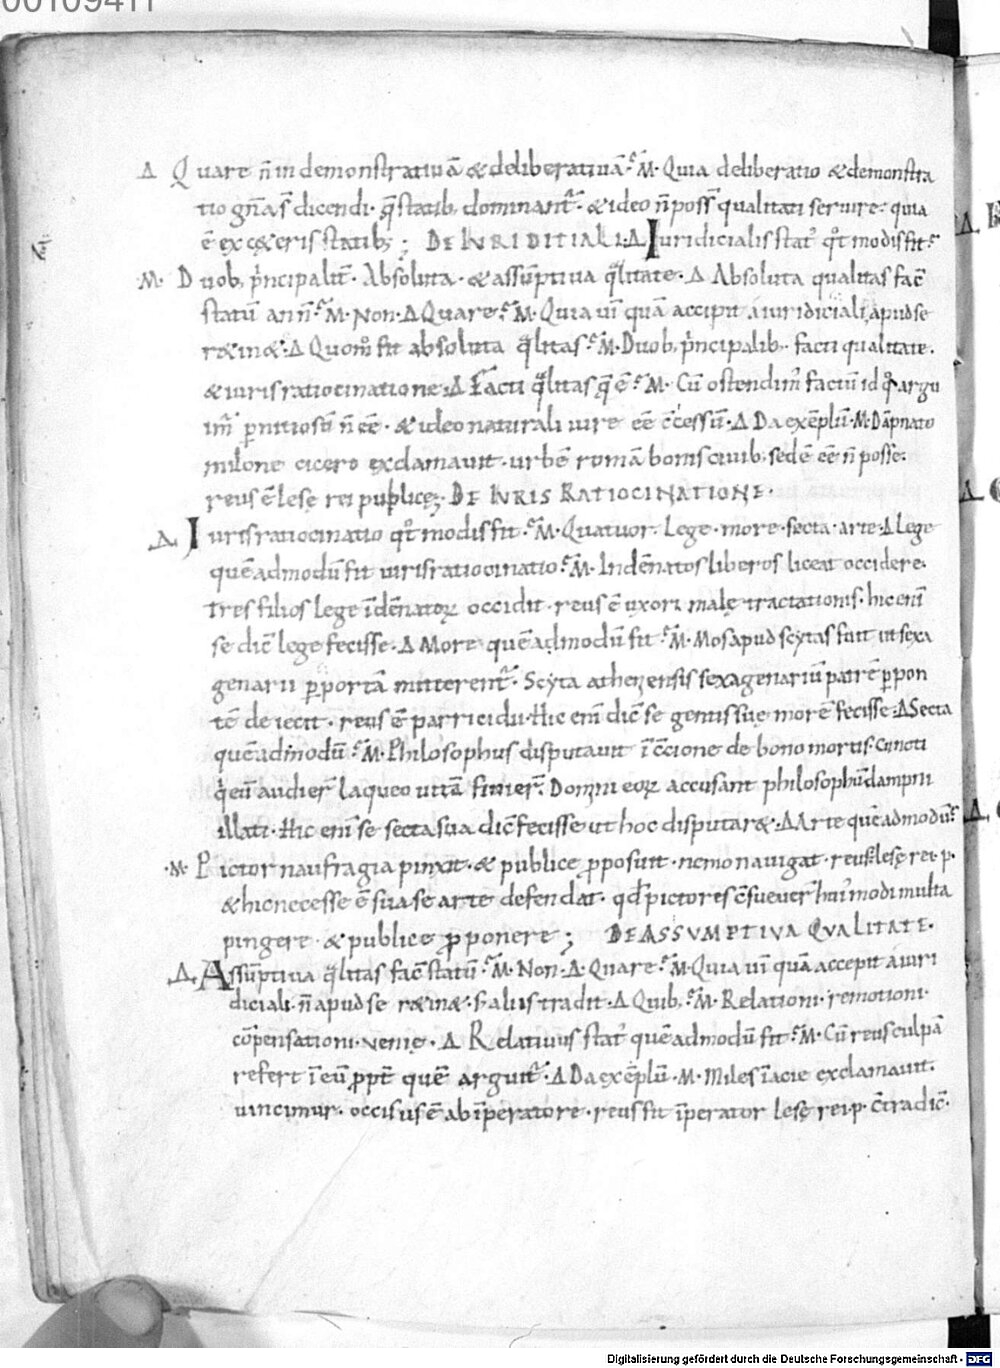 00109411
Δ Quare n̄ in demonstratiuā & deliberatiuā? M̄. Quia deliberatio & demonstra
tio gn̄a s̄ dicendi. q̄ statib; dominant᷑. & ideo n̄ poss̄ qualitati seruire. quia
ē ex c&eris statib; ; DE IURIDITIALI. Δ Iuridicialis stat᷒ qt̄ modis fit?
M̄. Duob; p̄ncipalit̄. Absoluta. & assūptiua q̄litate. Δ Absoluta qualitas fac̄
statū an n̄? M̄. Non. Δ Quare? M̄. Quia uī quā accipit a iuridiciali, apud se
r&in&. Δ Quom̊ fit absoluta q̄litas? M̄. Duob; p̄ncipalib; facti qualitate.
& iuris ratiocinatione. Δ Facti q̄litas q̄ ē? M̄. Cū ostendim᷒ factū id q̊ argu
im᷒ ꝑnitiosū n̄ ēē. & ideo naturali iure ēē c̄cessū. Δ Da exēplū. M̄. Dāpnato
milone cicero exclamauit. urbē romā bonis ciuib; sedē ēē n̄ posse.
reus ē lesę rei puplicę; DE IURIS RATIOCINATIONE.
Δ Iuris ratiocinatio qt̄ modis fit? M̄. Quatuor. Lege. more. secta. arte. Δ Lege
quēadmodū fit iuris ratiocinatio? M̄. Indēnatos liberos liceat occidere.
Tres filios lege īdēnatoꝝ occidit. reus ē uxori malę tractationis. hic enī
se dic̄ lege fecisse. Δ More quēadmodū fit? M̄. Mos apud scytas fuit ut sexa
genarii ꝑ portā mitterent᷑. Scyta athenensis sexagenariū patrē ꝑ pon
tē deiecit. reus ē parricidii. Hic enī dic̄ se gentis suę morē fecisse. Δ Secta
quēadmodū? M̄. Philosophus disputauit ī c̄cione de bono mortis. Cuncti
q̄ eū audier̄ laqueo uitā finier̄. Domini eoꝝ accusant philosophū dampni
illati. Hic enī se secta sua dic̄ fecisse ut hoc disputar&. Δ Arte quēadmodū?
M̄. Pictor naufragia pinxit. & publice ꝓposuit. nemo nauigat. reus lesę rei. p.
& hic necesse ē sua se arte defendat. qd̄ pictores c̄sueuer̄ hui᷒modi multa
pingere & publice ꝓponere; DE ASSUMPTIVA QUALITATE.
Δ Assūptiua q̄litas fac̄ statū? M̄. Non. Δ Quare? M̄. Quia uī quā accepit a iuri
diciali. n̄ apud se r&in&. s; aliis tradit. Δ Quib;? M̄. Relationi. remotioni.
cōpensationi. uenię. Δ Relatiuus stat᷒ quēadmodū fit? M̄. Cū reus culpā
refert ī eū ꝓpt̄ quē arguit᷑. Δ Da exēplū. M̄. Miles ī acie exclamauit.
uincimur. occisus ē ab īperatore. reus fit īperator lesę rei. p. c̄tradic̄.
Digitalisierung gefördert durch die Deutsche Forschungsgemeinschaft - DFG